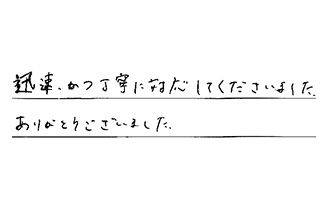 迅速、かつ丁寧に対応してくださいました。
ありがとうございました。